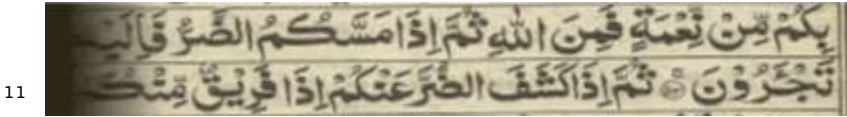 بِكُمْ مِّنْ نِّعْمَةٍ فَمِنَ اللّٰهِ ثُمَّ اِذَا مَسَّكُمُ الضُّرُّ فَاِلَيْـ
تَجْـَٔرُوْنَ ۞ ثُمَّ اِذَا كَشَفَ الضُّرَّ عَنْكُمْ اِذَا فَرِيْقٌ مِّنْكُـ
11